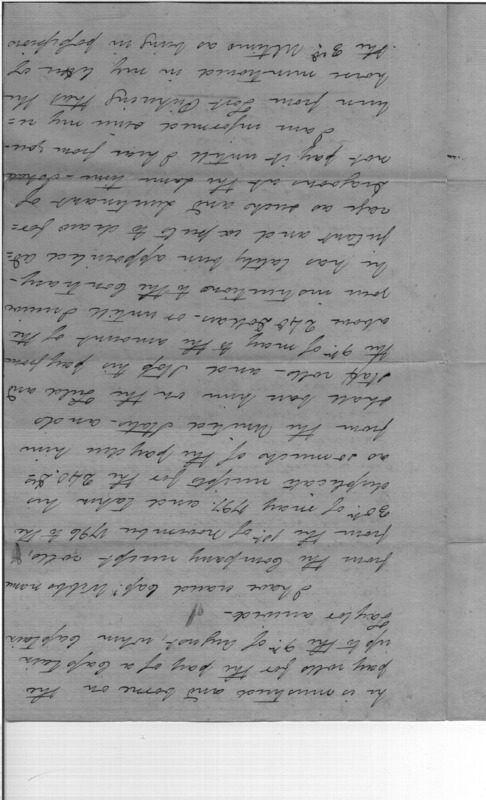 he is mustered and borne on the
pay rolls for the pay of a Captain
up to the 9th. of August, when Captain
Taylor arrived—
I have erased Capt. Webbs name
from the Company receipt rolls,
from the 1st. of November 1796 to the
30th. of may 1797. and taken his
duplicate receipts for the 240.Ds
as so much of the pay due him
from the United States. and o
shall bear him on the Field and
Staff roll— and Stop his pay from
the 9th. of may to the amount of the
above 240 Dollars. or untill I receive
your instructions to the Contrary—
he has lately been appointed ad=
jutant and expects to draw for=
rage as such and Lieutenant of
Dragoons at the same time—I shall
not pay it untill I hear from you—
I am informed since my re=
turn from Fort Pickering that the
horse mentioned in my letter of
the 3rd. Ultimo as being in possession